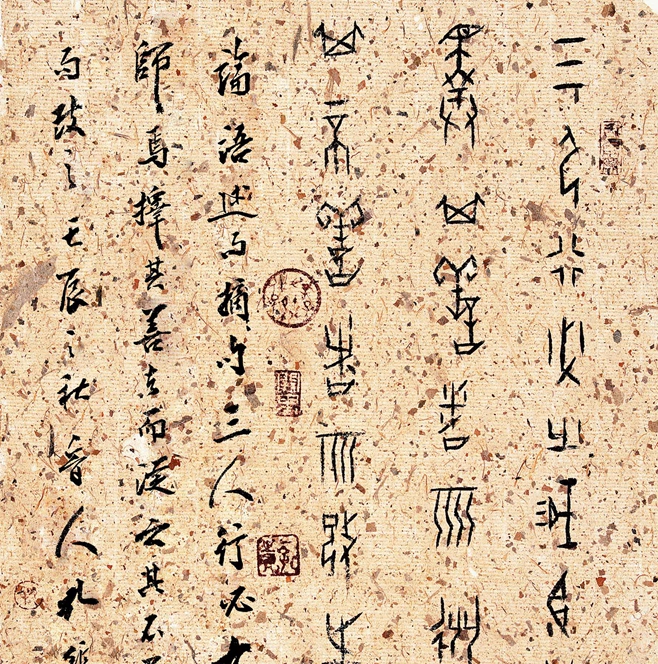 三人行必有我師
擇其善者而從
其不善者而改之
論語述而摘句三人行必有
師焉擇其善者而從之其不
而改之壬辰之秋晉人孔